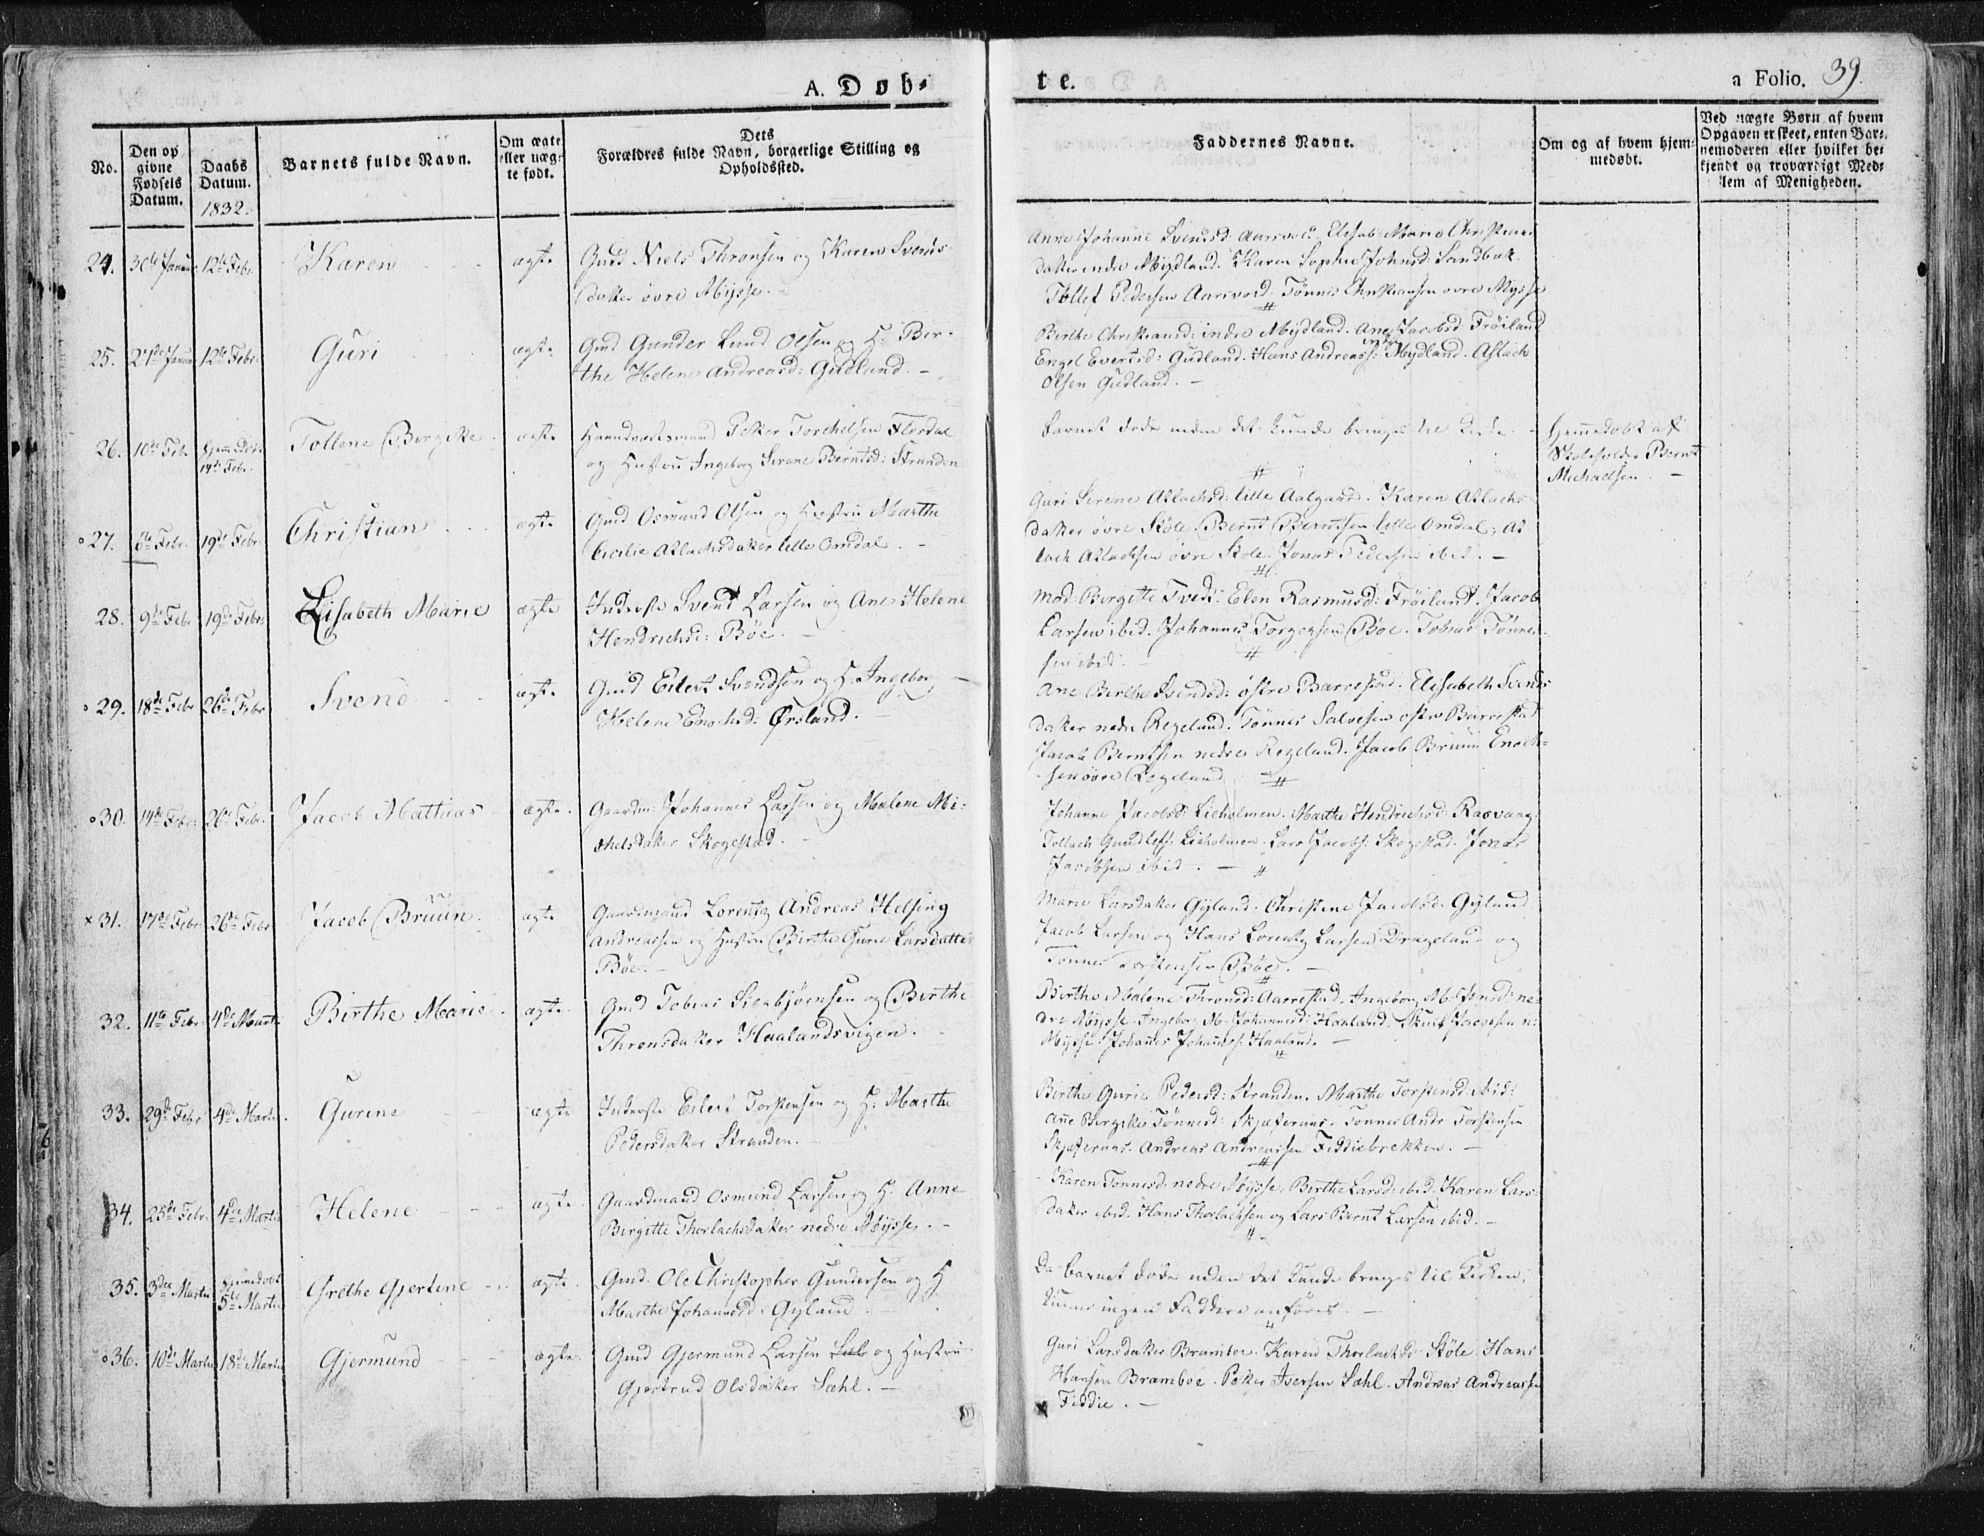 A. Døb-
te.
a Folio. 39.
No.
Den op
givne
Fødsels
Datum.
Daabs
Datum.
1832.
Barnets fulde Navn.
Om ægte
eller uæg-
te født.
Dets
Forældres fulde Navn, borgerlige Stilling og
Opholdssted.
Faddernes Navne.
Om og af hvem hjem-
medøbt.
Ved uægte Børn af hvem
Opgaven er skeet, enten Bar-
nemoderen eller hvilket be-
kjendt og troværdigt Med-
lem af Menigheden.
24. 30te Januar 12te Febr. Karen ægte Gmd Niels Thronsen og Karen Svends-
datter øvre Mysse.
Anne Johanne Svendsd: Aarrvold. Elisab: Marie Christians
datter indre Mydland. Karen Sophie Johnsd: Sandbæk.
Tollef Pedersen Aarrvold. Tønnes Christiansen øvre Mysse
25. 27de Januar 12te Febr. Guri ægte Gmd Gunder Lund Olsen og H: Bir-
the Helene Andreasd: Gudland. -
Birthe Christiansd: indre Mydland. Ane Jacobsd Frøiland
Engel Evertsd: Gudland. Hans Andreass: indre Mydland. Aslach
Olsen Gudland. -
26. 10de Febr. Hjemdøbt
14de Febr. Tollene Bergitte ægte Peter Torchelsen Flordal
og Hustru Ingeborg Serene Berntsd: Stranden
Barnet døde inden det kunde bringes til Kirke.
Hjemmedøbt af
Skoleholder Bernt
Michaelsen. -
27. 6te Febr. 19de Febr. Christian ægte Gmd Osmund Olsen og Hustru Marthe
Cecilie Aslachsdatter lille Omdal. -
Guri Serene Aslachsd: lille Aalgaard. Karen Aslachs
datter øvre Støle. Bernt Berntsen lille Omdal, As
lach Aslachsen øvre Støle. Jonas Pedersen ibid. -
28. 9de Febr 19de Febr. Elisabeth Marie ægte Inderste Svend Larsen og Ane Helene
Hendrichsd: Bøe.
Mad Bergitte Tvedt. Elen Rasmusd: Frøiland. Jacob
Larsen ibid. Johannes Torgersen Bøe. Tobias Tønnes-
sen ibid.
29. 18de Febr 26de Febr Svend ægte Gmd Eilert Svendsen og H. Ingeborg
Helene Enochsd: Ørsland. -
Ane Birthe Svendsd: østre Barrestad. Elisabeth Svends
datter nedre Regeland. Tønnes Salvesen østre Barrestad
Jacob Berntsen nedre Regeland. Jacob Bruun Enoch-
sen øvre Regeland
30. 14de Febr. 26de Febr. Jacob Mathias ægte. Gaardm: Johannes Larsen og Malene Mi-
chelsdatter Skogestad.
Johanne Jacobsd: Lieholmen. Marthe Hendrichsd: Rasvaag
Tollach Gundless: Lieholmen. Lars Jacobs: Skogestad. Jonas
Jacobsen ibid. -
31. 17de Febr. 26de Febr. Jacob Bruun. ægte Gaardmand Lorentz Andreas Helsing
Andreassen og Hustru Birthe Gurie Larsdatter
Bøe. -
Marie Larsdatter Gyland. Christine Jacobsd. Gyland
Jacob Larsen og Hans Lorentz Larsen Drageland og
Tønnes Torstensen Bøe. -
32. 11te Febr. 4de Martii Birthe Marie. ægte. Gmd Tobias Steenbjørnsen og Birthe
Thronsdatter Haalandsvigen.
Birthe Malene Thronsd: Aarrestad. Ingeborg M. Jensd: ne-
dre Mysse. Ingeborg M. Johannesd: Haaland. Jacobsen n:
Mysse. Johannes Johanness: Haaland. -
33. 29de Febr 4de Martii. Gurine ægte Inderste Eilert Torstensen og H: Marthe
Pedersdatter Stranden.
Birthe Gurie Pedersd: Stranden. Marthe Torstensd: ibid:
Ane Bergitte Tønnesd: Skjæferaas. Tønnes Andr Torstensen
Skjæferaas. Andreas Andreassen Fiddiebrekken. -
34. 25de Febr. 4de Martii Helene ægte. Gaardmand Osmund Larsen og H. Anne
Birgitte Thorlachsdatter nedre Mysse. -
Karen Tønnesd: nedre Mysse. Birthe Larsd: ibid. Karen Lars-
datter ibid. Hans Thorlachsen og Lars Bernt Larsen ibid. -
35. 3die Martii Hjemmedøbt
5te Martii Grethe Gjertine ægte. Gmd. Ole Christopher Gundersen og H
Marthe Johannesd: Gyland.
Da barnet døde inden det kunde bringes til Kirken,
kunne ingen Faddere anføres -
36. 10de Martii 18de Martii Gjermund ægte. Gmd Gjermund Larsen og Hustru
Gjertrud Olsdatter Sæhl. -
Guri Larsdatter Bramboe. Karen Thorlachsd: Støle. Hans
Hansen Bramboe. Petter Iversen Sæhl. Andreas Andreassen
Fiddie. -